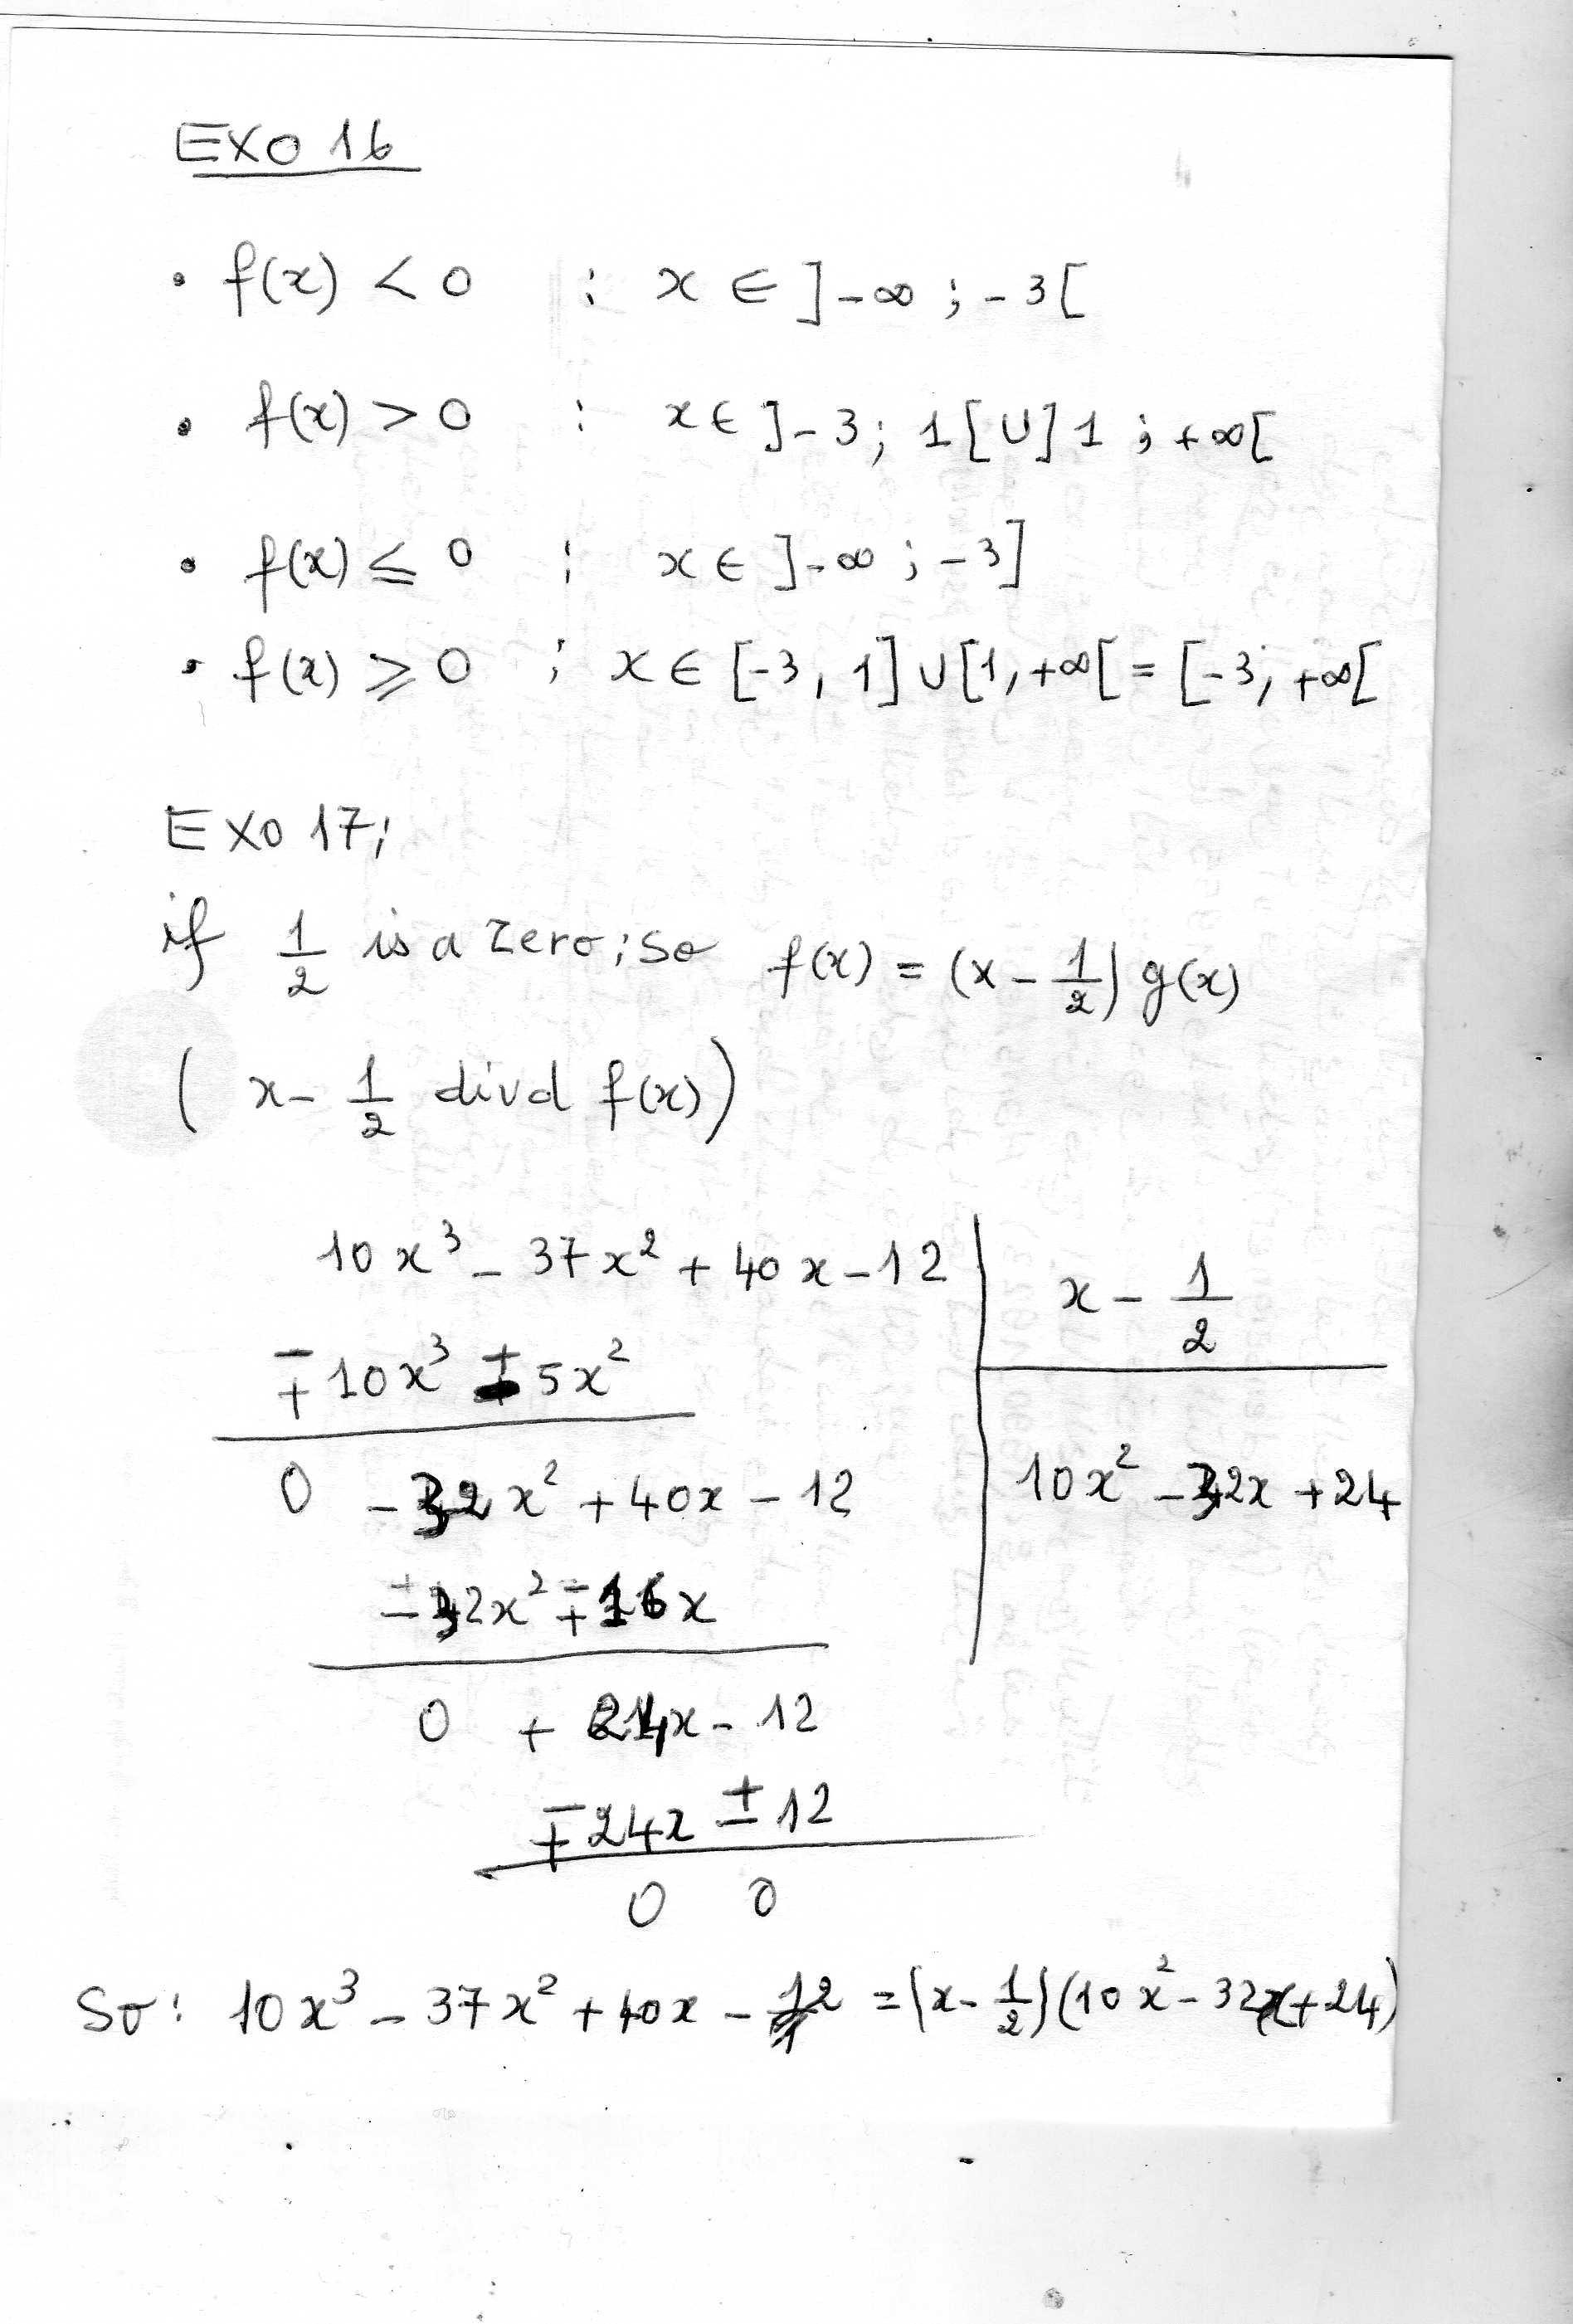 EXO 16
• f(x) < 0 : x ∈ ]-∞ ; -3[
• f(x) > 0 : x ∈ ]-3 ; 1[ U ]1 ; +∞[
• f(x) ≤ 0 : x ∈ ]-∞ ; -3]
• f(x) ⩾ 0 : x ∈ [-3, 1] U [1, +∞[ = [-3; +∞[
EXO 17;
if 1/2 is a zero; so f(x) = (x - 1/2) g(x)
( x - 1/2 divd f(x))
10x³ - 37x² + 40x - 12 | x - 1/2
∓ 10x³ ± 5x²
0 - 32x² + 40x - 12 | 10x² - 32x + 24
± 32x² ∓ 16x
0 + 24x - 12
∓ 24x ± 12
0 0
So: 10x³ - 37x² + 40x - 12 = (x - 1/2)(10x² - 32x + 24)